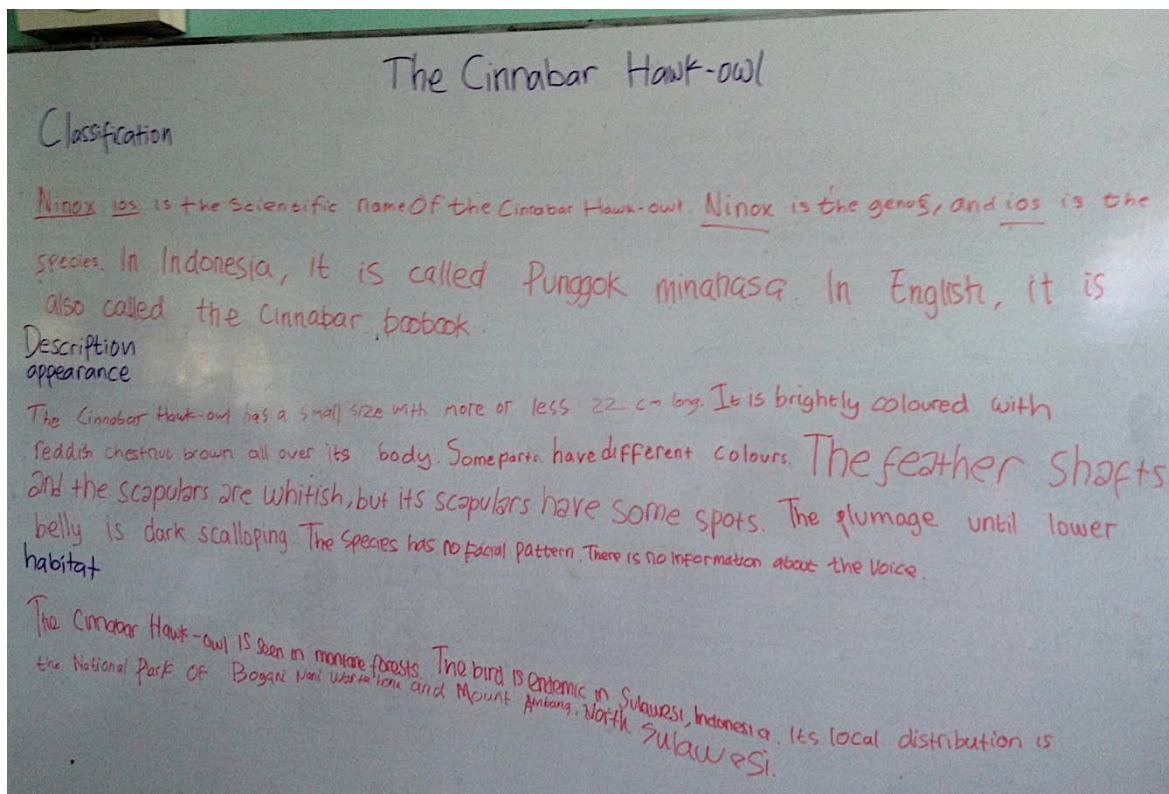 The Cinnabar Hawk-owl
Classification
Ninox ios is the Scientific name Of the Cinnabar Hawk-owl. Ninox is the genus, and ios is the
species. In Indonesia, it is called Punggok minahasa. In English, it is
also called the Cinnabar boobook.
Description
appearance
The Cinnabar Hawk-owl has a small size with more or less 22 cm long. It is brightly coloured with
reddish chestnut brown all over its body. Some parts have different colours. The feather Shafts
and the scapulars are whitish, but its scapulars have some spots. The plumage until lower
belly is dark scalloping. The species has no facial pattern. There is no information about the voice.
habitat
The Cinnabar Hawk-owl is seen in montane forests. The bird is endemic in Sulawesi, Indonesia. Its local distribution is
the National Park Of Bogani Nani Wartabone and Mount Ambang, North Sulawesi.